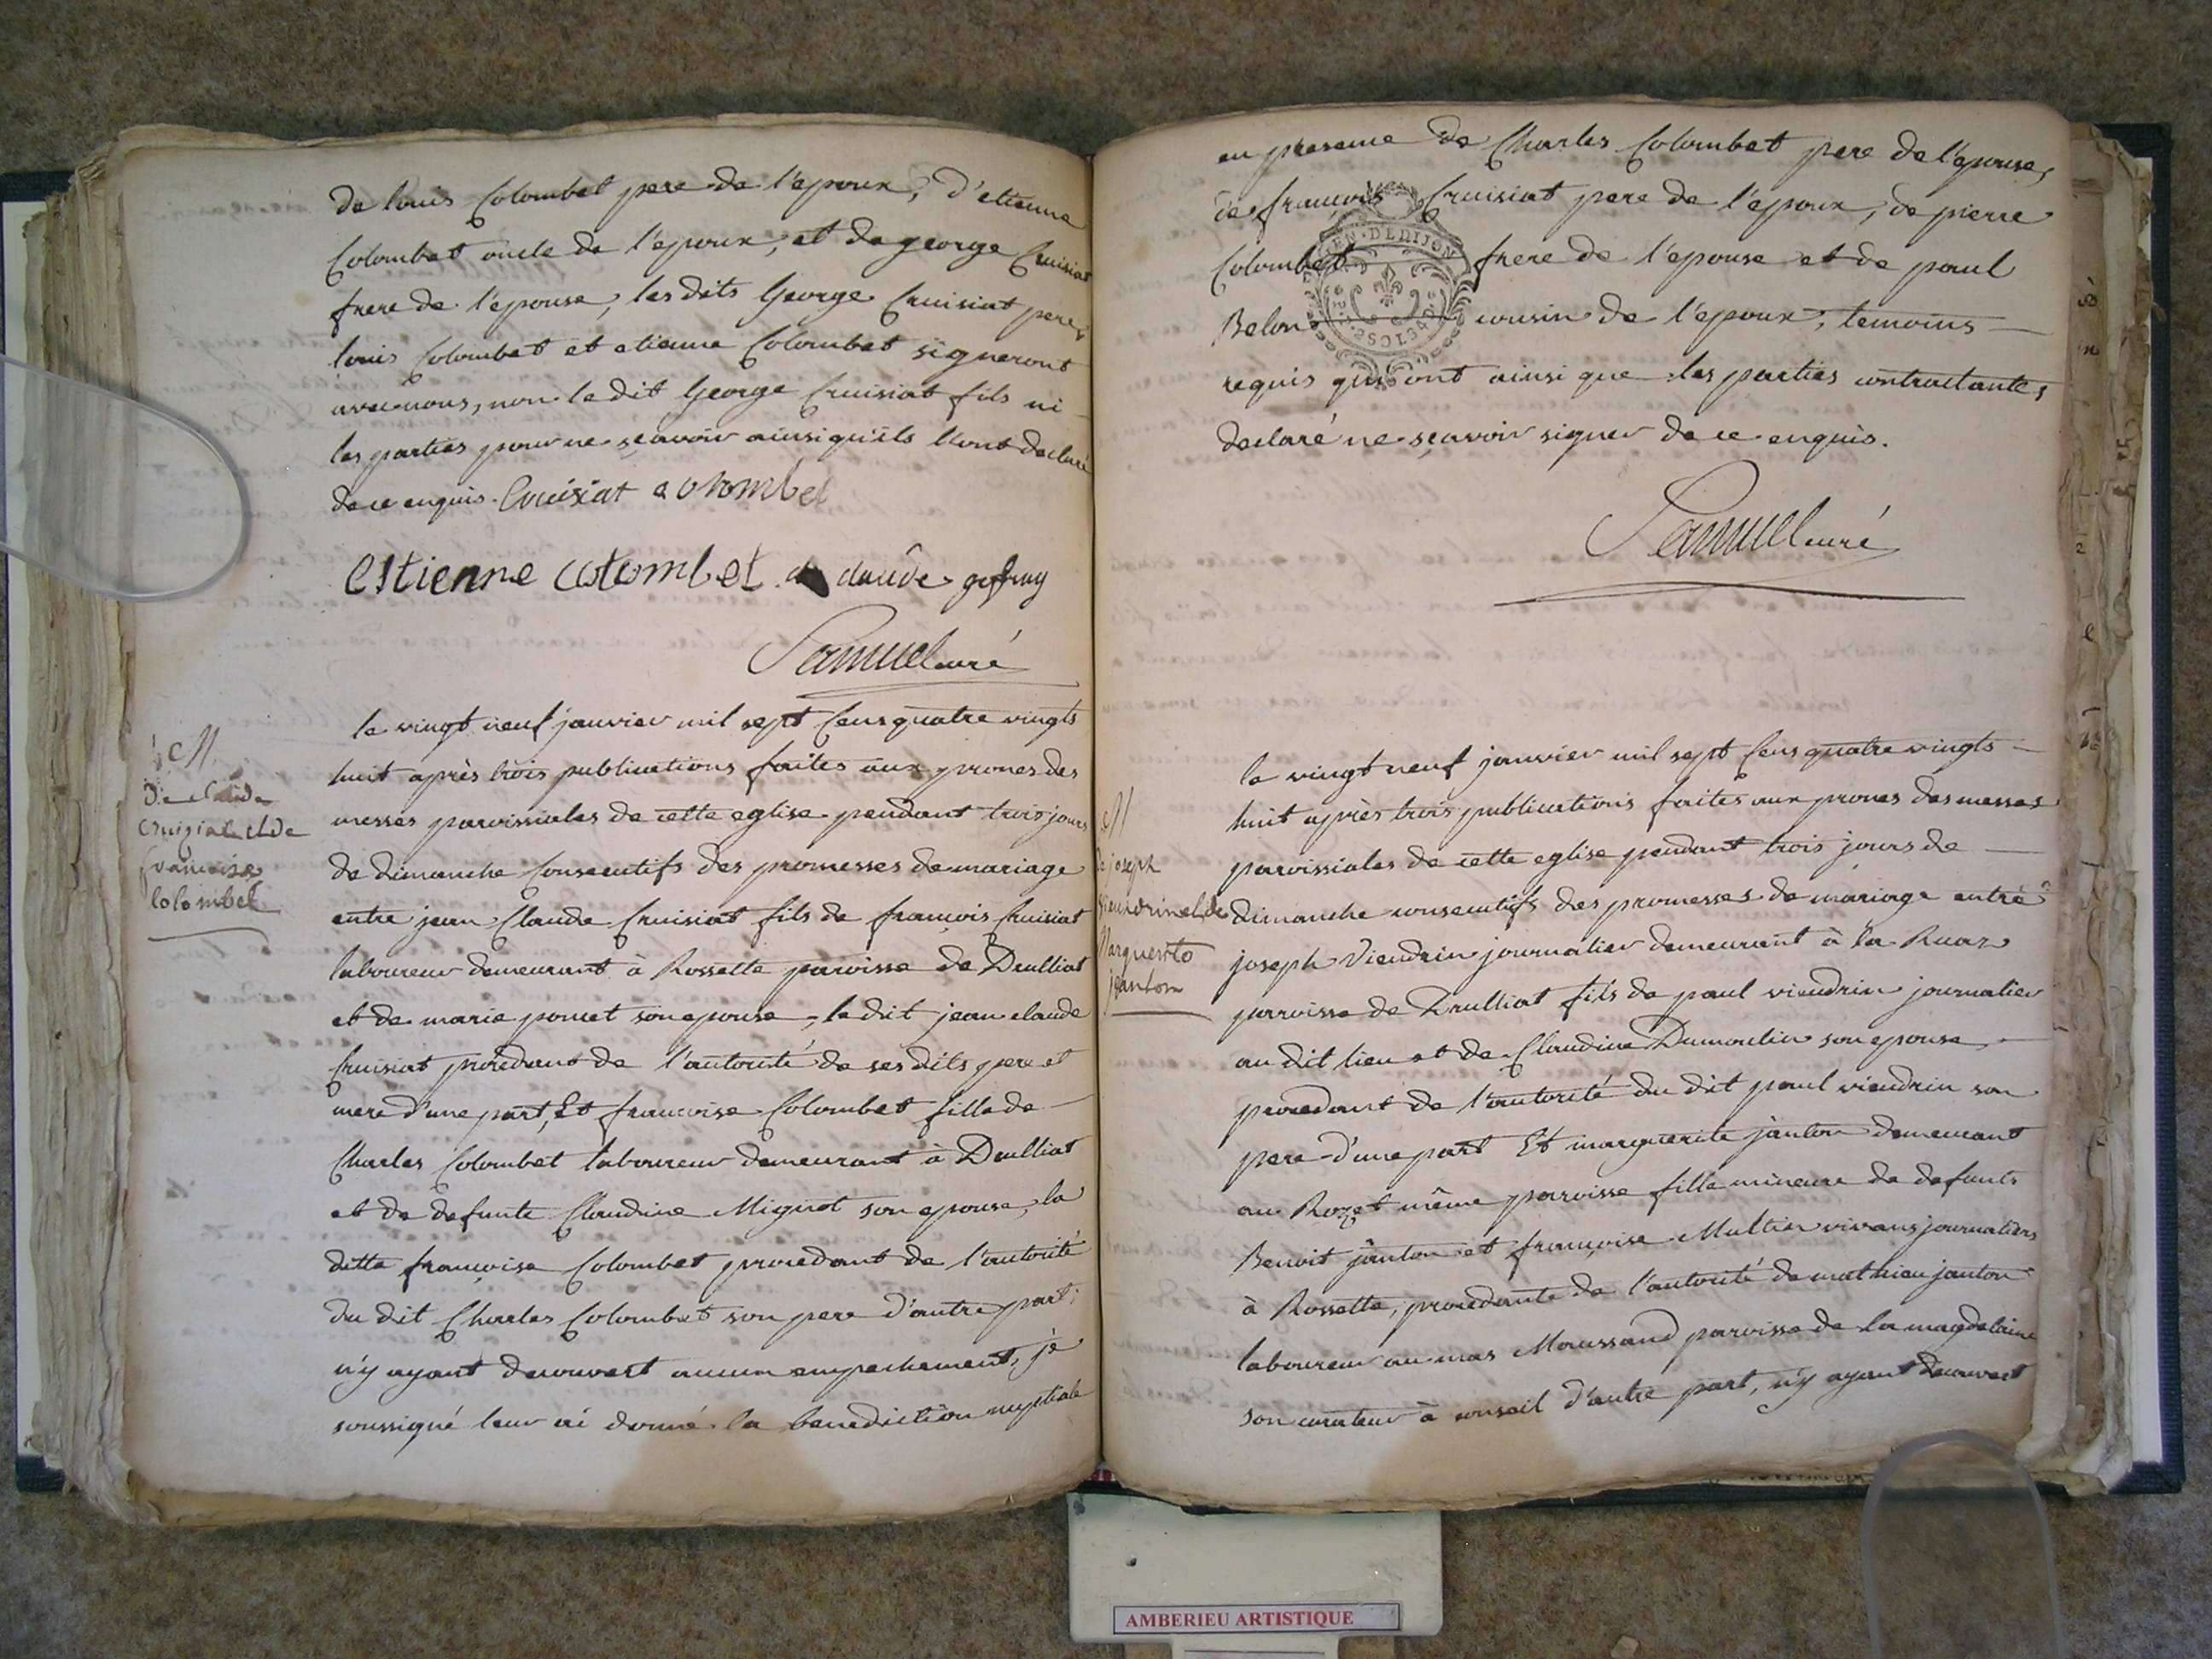 de louis Colombet pere de l'epoux, d'etienne
Colombet oncle de l'epoux, et de george Cruisiat
frere de l'epouse, les dits George Cruisiat pere,
louis Colombet et etienne Colombet signeront
avec nous, non le dit George Cruisiat fils ni
les parties pour ne sçavoir ainsi qu'ils l'ont declaré
de ce enquis. Cruisiat colombet
estienne colombet claude
Samuel curé
M
De Claude
Cruiziat et de
francoise
Colombet
le vingt neuf janvier mil sept Cens quatre vingts
huit après trois publications faites aux prones des
messes paroissiales de cette eglise pendant trois jours
de dimanche Consecutifs des promesses de mariage
entre jean Claude Cruisiat fils de françois Cruisiat
laboureur demeurant à Rossette paroisse de Druilliat
et de marie poncet son epouse, le dit jean claude
Cruisiat procedant de l'autorité de ses dits pere et
mere d'une part, Et francoise Colombet fille de
Charles Colombet laboureur demeurant à Druilliat
et de defunte Claudine Mignot son epouse, la
ditte françoise Colombet procedant de l'autorité
du dit Charles Colombet son pere d'autre part;
n'y ayant decouvert aucun empechement, je
soussigné leur ai donné la benediction nuptiale
en presence de Charles Colombet pere de l'epouse,
de françois Cruisiat pere de l'epoux, de pierre
Colombet frere de l'epouse et de paul
Belon cousin de l'epoux, temoins
requis qui ont ainsi que les parties contractantes
declaré ne sçavoir signer de ce enquis.
GEN · DE DIJON
Samuel curé
M
de joseph
Vieudrin et de
Marguerite
janton
le vingt neuf janvier mil sept Cens quatre vingts
huit après trois publications faites aux prones des messes
paroissiales de cette eglise pendant trois jours de
dimanche consecutifs des promesses de mariage entre
joseph Vieudrin journalier demeurant à la Ruaz
parroisse de Druilliat fils de paul vieudrin journalier
au dit lieu et de Claudine Dumoulin son epouse,
procedant de l'autorité du dit paul vieudrin son
pere d'une part Et marguerite janton demeurant
au Rozet même parroisse fille mineure de defunts
Benoit janton et françoise Multier vivans journaliers
à Rossette, procedante de l'autorité de mathieu janton
laboureur au mas Maussand paroisse de la magdelaine
son curateur à conseil d'autre part, n'y ayant decouvert
AMBERIEU ARTISTIQUE